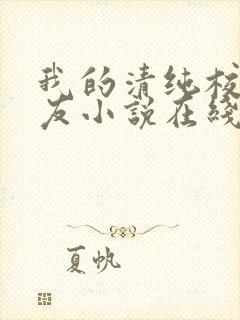 我的清纯校
友小説在綫
夏帆